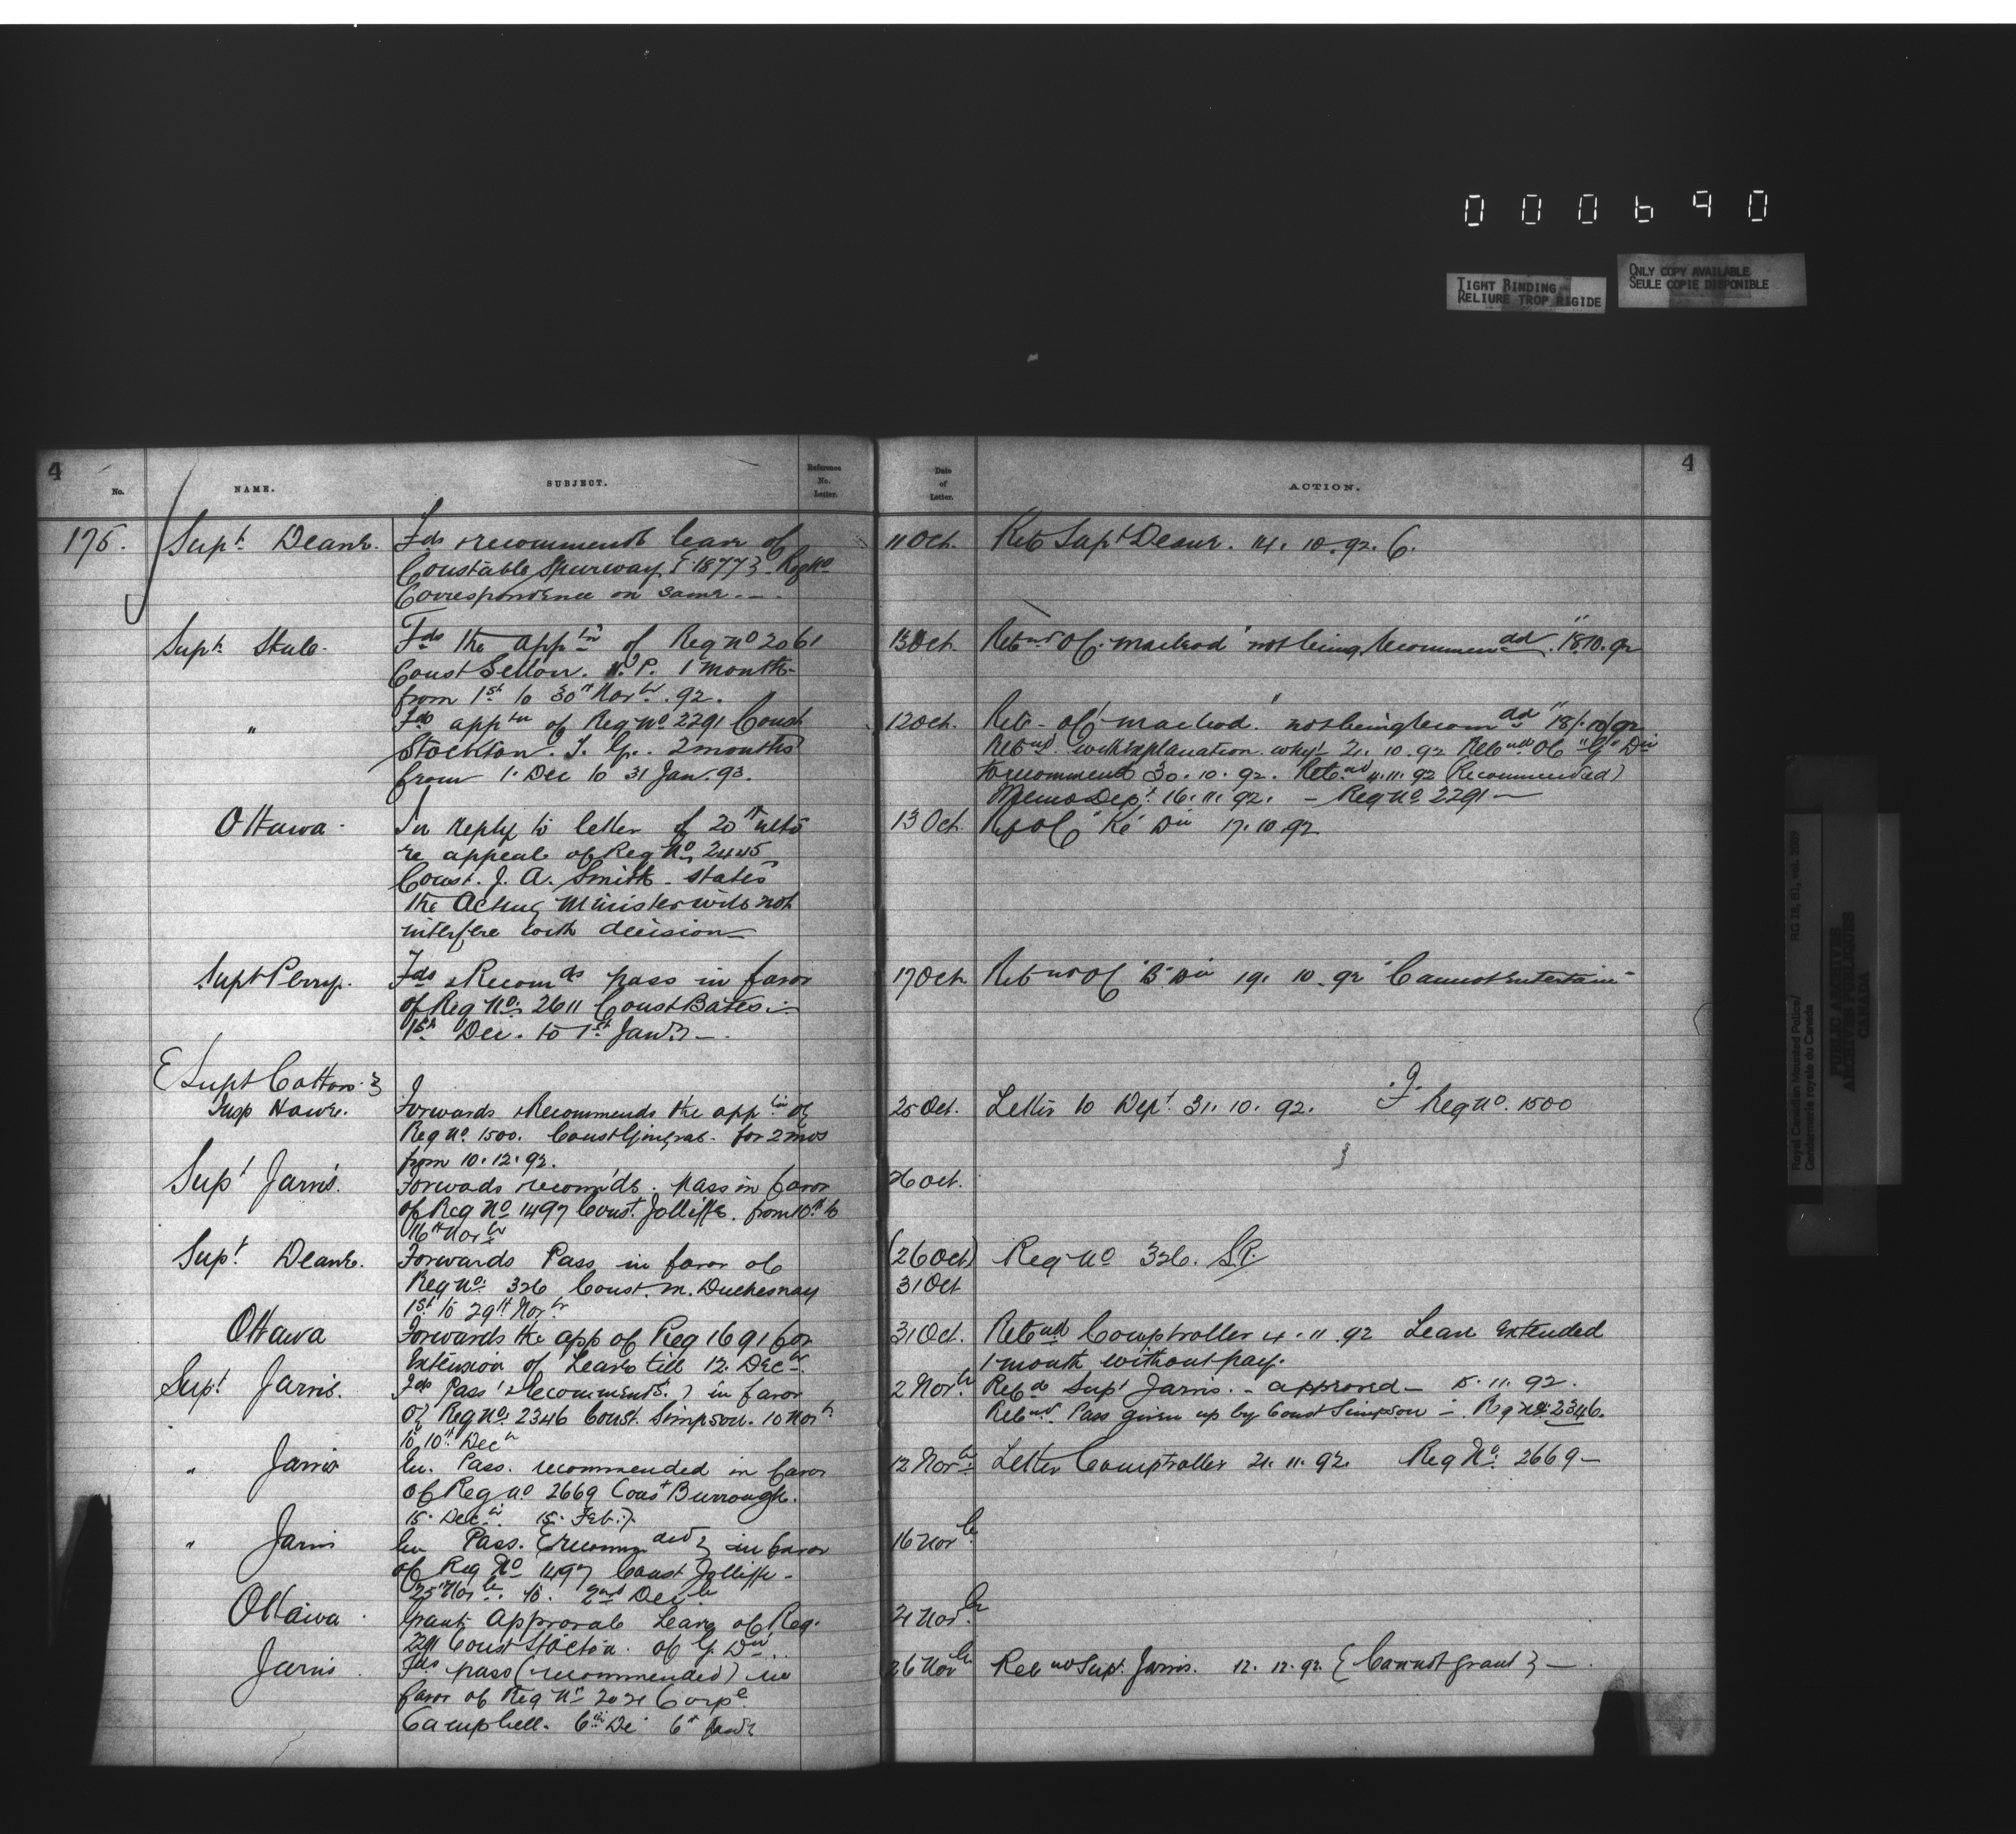 000690
TIGHT BINDING
RELIURE TROP RIGIDE
ONLY COPY AVAILABLE
SEULE COPIE DISPONIBLE
4
No.
NAME.
SUBJECT.
Reference No. Letter.
Date of Letter.
ACTION.
4
175. Supt. Deane. Fds & recommends leave of 11 Oct. Ret Supt Deane. 14. 10. 92. C.
Constable Spurway { 1877 } Reg No
Correspondence on same. —
Supt. Fds the appn of Reg No 2061 13 Oct. Retnd OC. Macleod "not being recommended" 18.10.92
Const 1 month
from 1st to 30th Novbr. 92.
" Fds apptn of Reg No 2291 Const 12 Oct. Ret OC Macleod. "not being recomdd" 18/10/92
Stockton. 2 months Retnd. with explanation. why! 21. 10. 92 Retnd OC "G" Div
from 1. Dec to 31 Jan. 93. to recommend 30. 10. 92. Retnd 11. 11. 92 (Recommended)
Memo Dept. 16. 11. 92. — Reg No 2291 —
Ottawa. In reply to letter of 20th ulto 13 Oct. OC "K" Div 17. 10. 92
re appeal of Reg No 2445
Const. J. A. Smith. states
the Acting Minister will not
interfere with decision
Supt Perry. Fds & Recomds pass in favor 17 Oct. Retnd OC "B" Div 19. 10. 92 "Cannot entertain"
of Reg No. 2611 Const Bates.
1st Dec. to 1st Jan
{ Supt Cotton. }
Insp Howe. Forwards & Recommends the apptn of 25 Oct. Letter to Dept. 31. 10. 92. F. Reg No. 1500
Reg No 1500. Const Gingras. for 2 mos
from 10. 12. 92.
Supt Jarvis. Forwads recom'ds. pass in favor 26 Oct.
of Reg No 1497 Const. Jolliffe. from 10th to
16th Novbr
Supt. Deane. Forwards Pass in favor of (26 Oct) Reg No 326. S.R.
Reg No. 326 Const. M. Duchesnay 31 Oct
1st to 29th Novbr
Ottawa Forwards the app of Reg 1691 for 31 Oct. Retnd Comptroller 4. 11. 92 Leave extended
Extension of Leave till 12. Decbr 1 month without pay.
Supt Jarvis. Fds Pass (Recommends.) in favor 2 Novbr. Retd Supt Jarvis. - approved - 5. 11. 92.
of Reg No. 2346 Const. Simpson. 10 Novbr Retnd. Pass given up by Const Simpson — Reg No 2346.
to 10th Decbr
" Jarvis Pass. recommended in favor 12 Novbr. Letter Comptroller 21. 11. 92. Reg No. 2669 —
of Reg No 2669 Const Burrough.
15. Decbr. 15. Feb.
" Jarvis Pass. {recommended} in favor 16 Novbr
of Reg No 1497 Const Jolliffe -
25th Novbr. to. 2nd Decbr
Ottawa. Grants Approval Leave of Reg. 21 Novbr.
2291 Const Stockton. of G. Div.
Jarvis. Fds pass (recommended) in 26 Novbr Retnd Supt. Jarvis. 12. 12. 92. { Cannot grant } —
favor of Reg No 2021 Corpl
Campbell. 6th De 6th
Royal Canadian Mounted Police/
Gendarmerie royale du Canada
RG 18, B1, vol.
PUBLIC ARCHIVES
ARCHIVES PUBLIQUES
CANADA